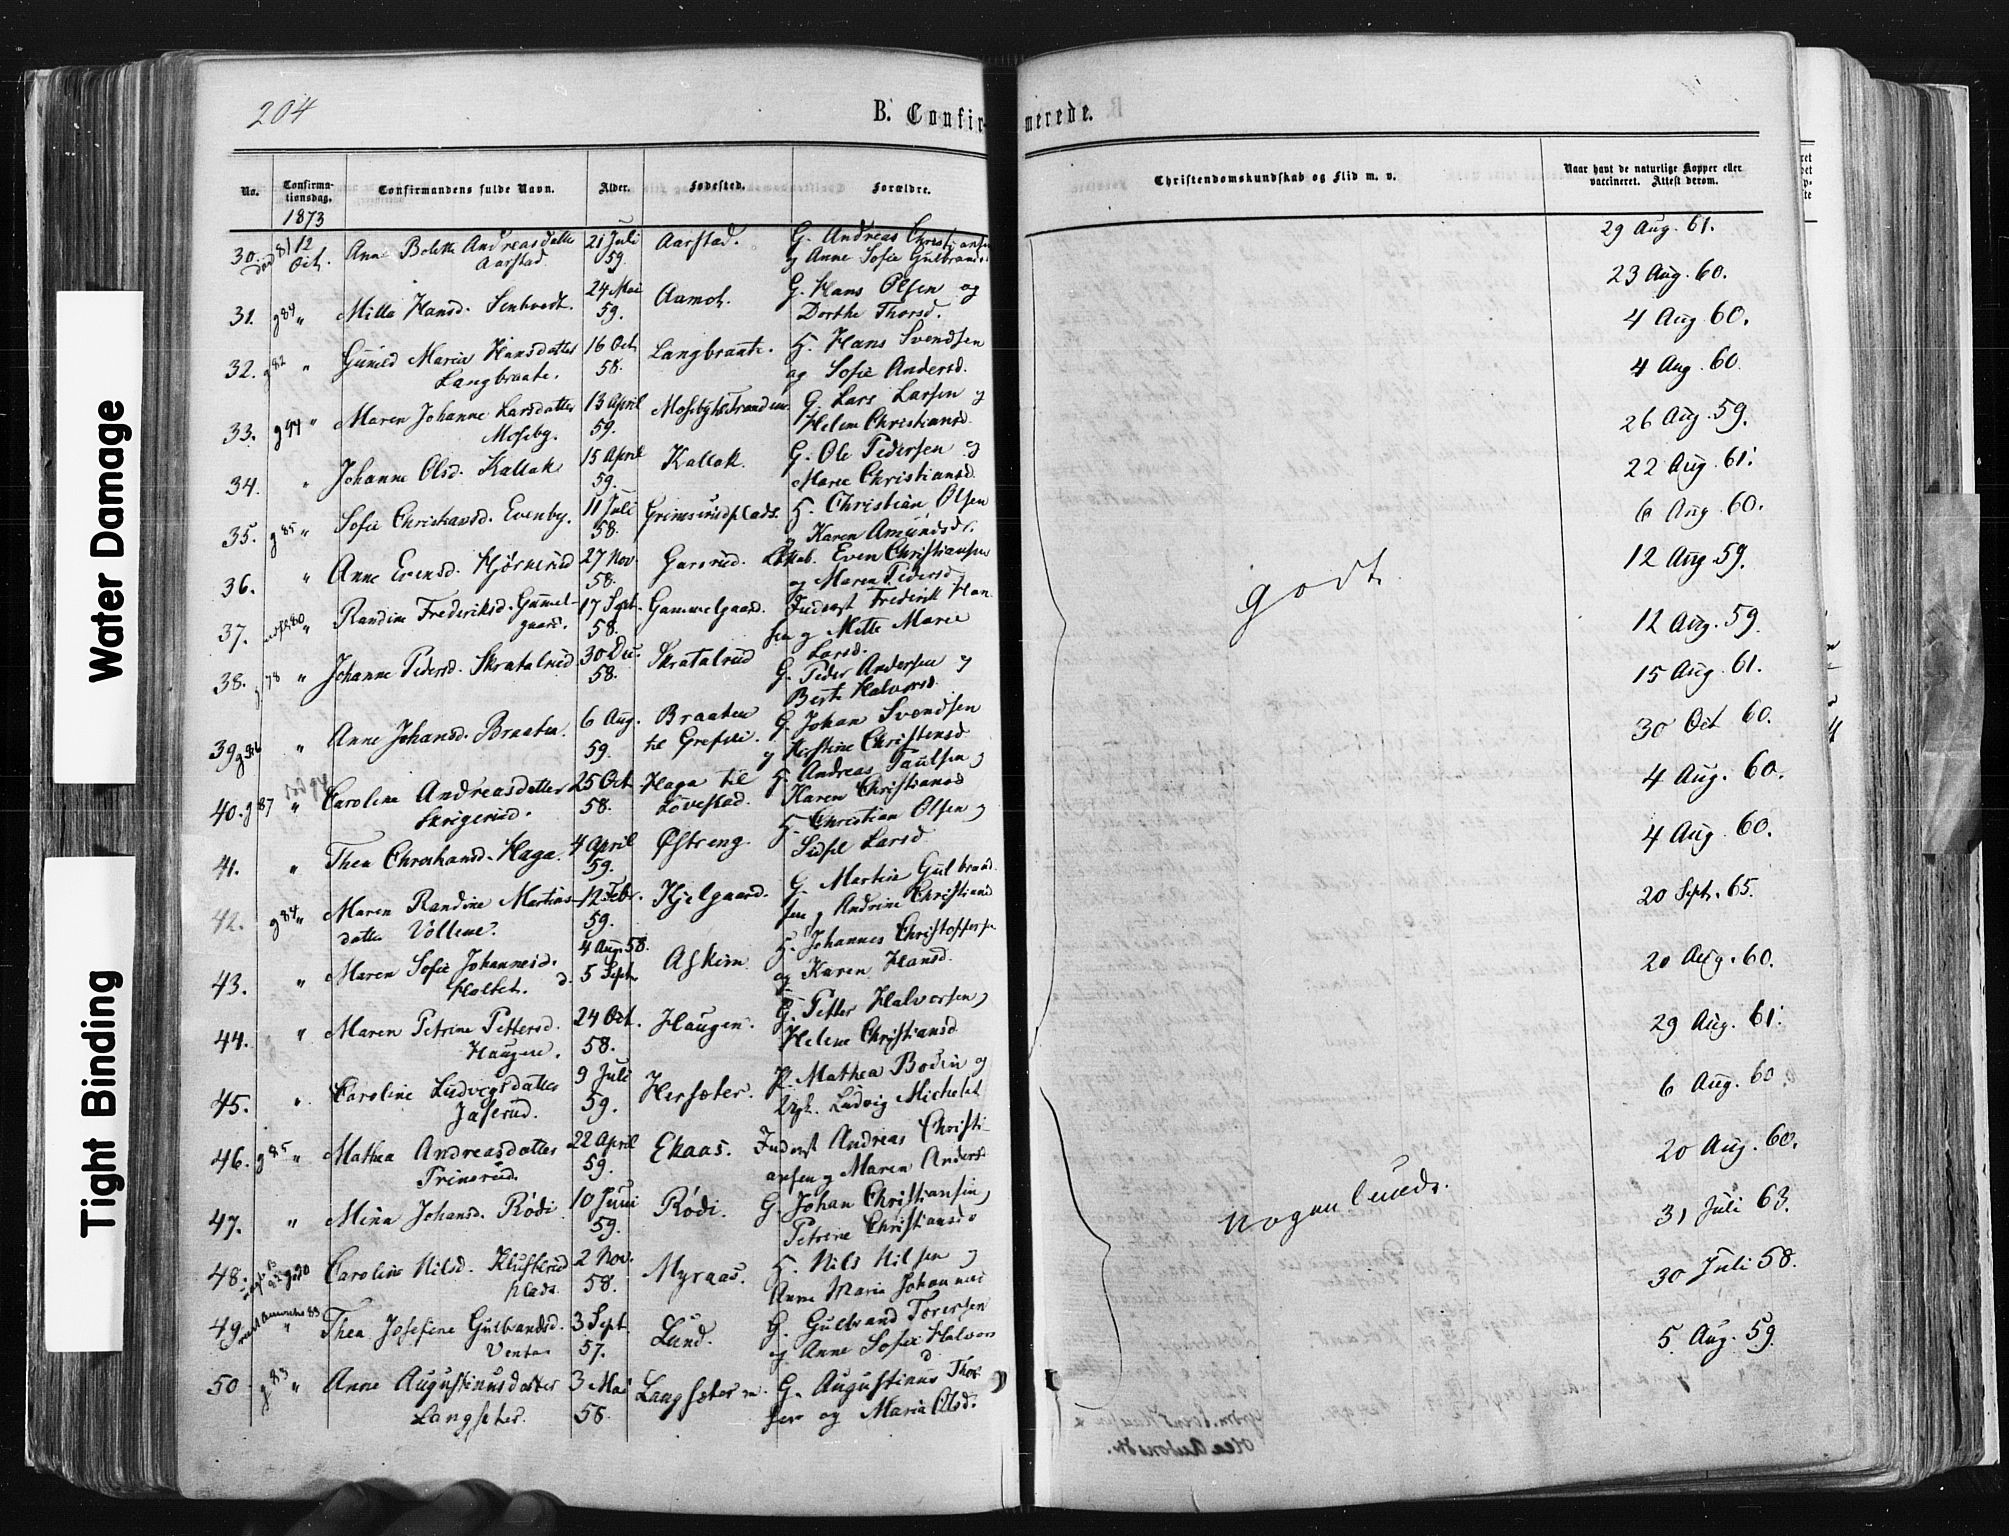 204
B. Confirmerede.
No.
Confirma-
tionsdag.
Confirmandens fulde Navn.
Alder.
Fødested.
Forældre.
Christendomskundskab og Flid m. v.
Naar havt de naturlige Kopper eller
vaccineret. Attest derom.
1873
30. død 81 12 Oct. Anne Bolette Andreasdatter 21 Juli Aarstad. G. Andreas Christiansen 29 Aug. 61.
Aarstad 59. og Anne Sofie Gulbrands
31. g 84 " Milla Hansd. 24 Mai Aamot. G. Hans Olsen og 23 Aug. 60.
59. Dorthe Thorsd.
32. g 82 " Gunild Maria Hansdatter 16 Oct. Langbraate. H. Hans Svendsen 4 Aug 60.
Langbraate. 58. og Sofie Andersd.
33. g 94 " Maren Johanne Larsdatter 13 April Mosebystranden G. Lars Larsen og 4 Aug. 60.
Moseby. 59. Helene Christiansd.
34. " Johanne Olsd. Kallak 15 April Kallak. G. Ole Pedersen og 26 Aug. 59.
59. Maree Christiansd.
35. g 85 " Sofie Christiansd. Evenby. 11 Juli Grimsrudplads. H. Christian Olsen 22 Aug. 61.
58. og Karen Amundsdr.
36. " Anne Evensd. Hjørnerud 27 Nov. Garsrud. Even Christiansen 6 Aug. 60.
58. og Maren Pedersd.
37. 80 " Randine Frederiksd. Gammel- 17 Sept. Gammelgaard. Inderst Frederik Han- 12 Aug 59.
gaard. 58. sen og Mette Marie
Larsd.
38. g 78 " Johanne Pedersd. Skratalrud 30 Dec. Skratalrud G. Peder Andersen og 12 Aug. 59.
58. Berte Halvorsd.
39 g 86 " Anne Johansd. Braaten. 6 Aug. Braaten G. Johan Svendsen 15 Aug. 61.
59. til Grefsli. og Kirstine Christensd
40. g 87 " Caroline Andreasdatter 25 Oct. Haga til H. Andreas Paulsen og 30 Oct 60.
Skrigerud. 58. Løvestad. Karen Christiansd
41. " Thea Christiansd. Haga. 4 April Østreng. H. Christian Olsen og 4 Aug. 60.
59. Sidsel Larsd.
42. g 84 " Maren Randine Martins- 12 Febr. Hjelgaard. G. Martin Gulbrand- 4 Aug. 60.
datter Vollene. 59. sen og Andrine Christiansd
43. " Maren Sofie Johannesd. 4 Aug. 58. Askim H. Johannes Christoffersen 20 Sept. 65.
Holtet. d. 5 Sept. og Karen Hansd.
44. " Maren Petrine Pettersd. 24 Oct. Haugen. G. Petter Halvorsen og 20 Aug. 60.
Haugen. 58. Helene Christiansd.
45. " Caroline Ludvigsdatter 9 Juli Hersæter. P. Mathea Bodin og 29 Aug. 61.
Jaserud. 59. Ludvig Michelet
46. g 85 " Mathea Andreasdatter 22 April Ekaas. Inderst Andreas Christi- 6 Aug. 60
Prinsrud. 59. ansen og Maren Andersd
47. " Mina Johansd. Rødi. 10 Juni Rødi. G. Johan Christiansen og 20 Aug. 60.
59. Petrine Christiansd.
48. g 90 " Caroline Nilsd. 2 Nov. Myraas. H. Nils Nilsen og 31 Juli 63.
plads. 58. Anne Maria Johannesd
49. 83 " Thea Josefine Gulbrandsd. 3 Sept. Lund. G. Gulbrand Torersen 30 Juli 58.
Venta 57. og Anne Sofie Halvors
d
50 g 83 " Anne Augustinusdatter 3 Mai Langsæter G. Augustinus Thor- 5. Aug. 59.
Langseter. 58. sen og Maria Olsd.
godt.
nogenlunde.
Olea Antonsdr.
Water Damage
Tight Binding